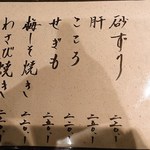 砂ずり 二二〇、
肝 二二〇、
こころ 二二〇、
せぎも 二五〇、
梅しそ焼き 二二〇、
わさび焼き 二二〇、